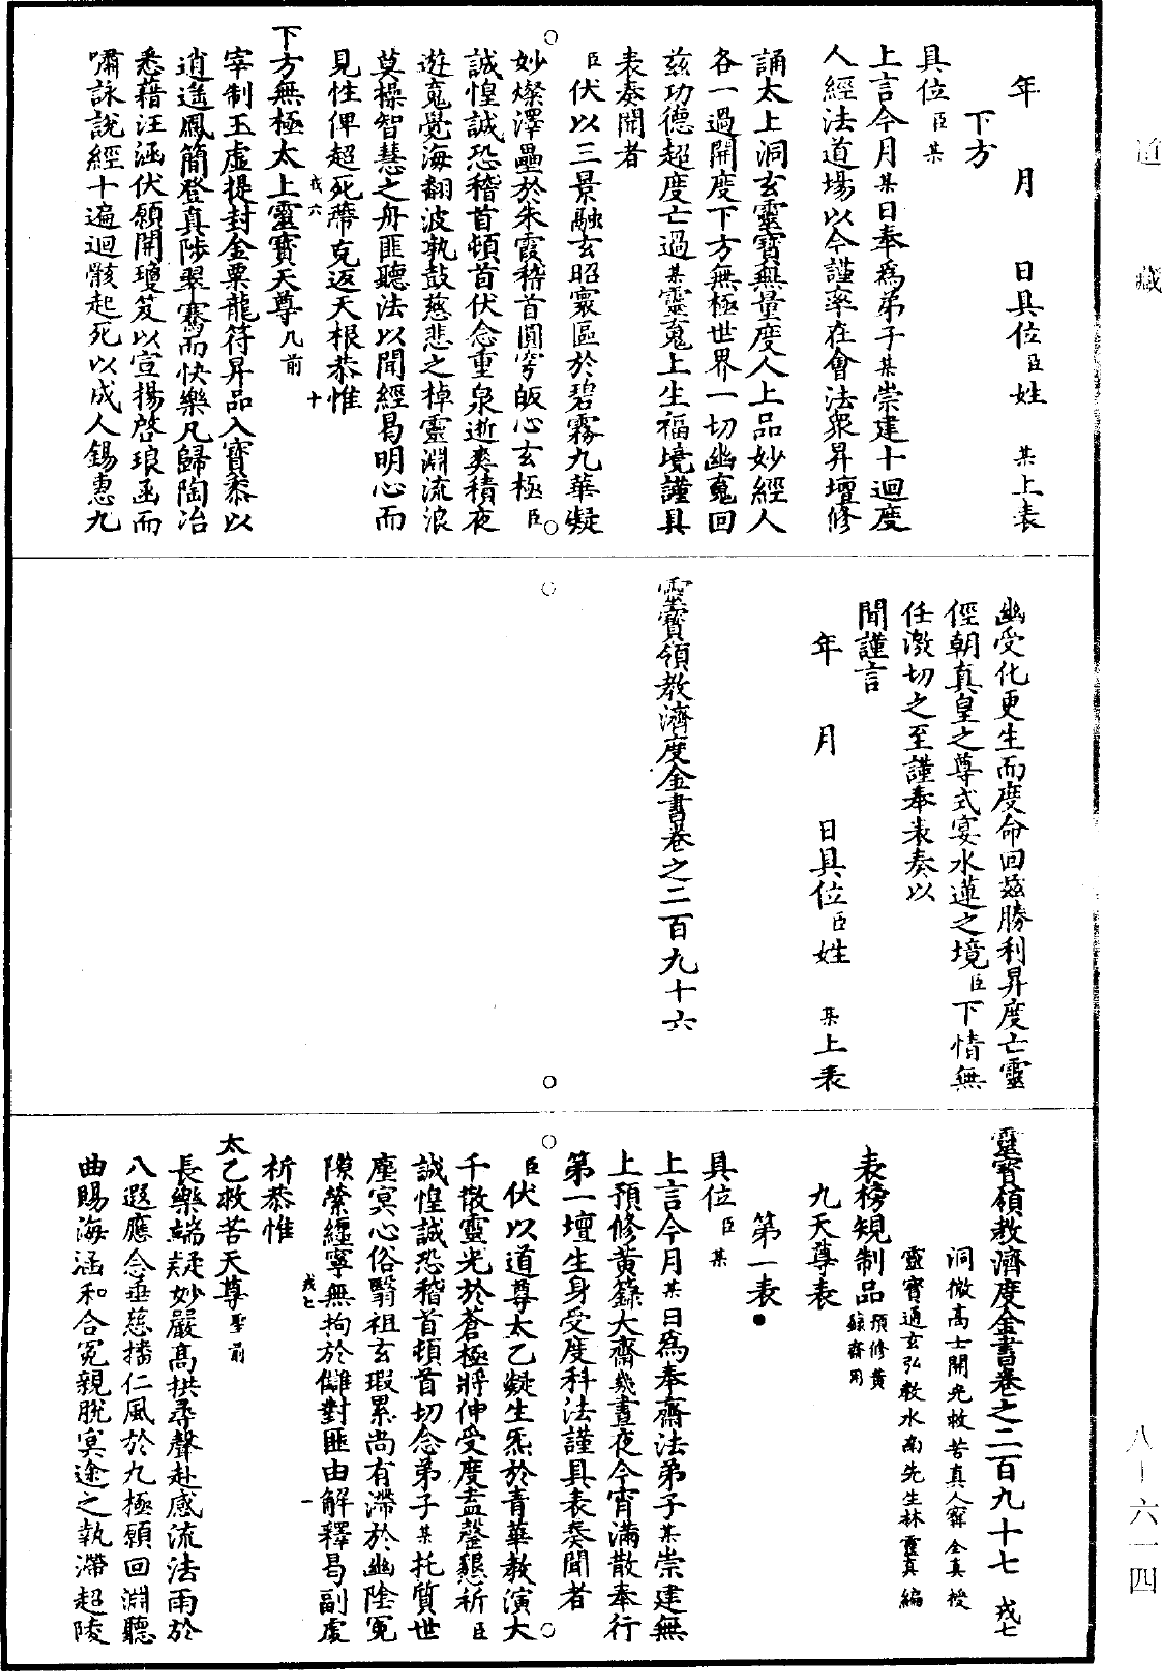 道藏
年　月　日具位臣姓　某上表
下方
具位臣某
上言今月某日奉為弟子某崇建十迴度
人經法道場以今謹率在會法衆昇壇修
誦太上洞玄靈寶無量度人上品妙經人
各一過開度下方無極世界一切幽䰟回
茲功德超度亡過某靈䰟上生福境謹具
表奏聞者
臣伏以三景融玄昭寰區於碧霧九華凝
妙燦澤壘於朱霞稽首圓穹皈心玄極臣
誠惶誠恐稽首頓首伏念重泉逝爽積夜
遊䰟覺海翻波孰鼓慈悲之棹靈淵流浪
莫操智慧之舟匪聽法以聞經曷明心而
見性俾超死籍克返天根恭惟
戎六　十
下方無極太上靈寶天尊几前
宰制玉虛提封金粟龍符昇品入寶黍以
逍遙鳳簡登真陟翠騫而快樂凡歸陶冶
悉藉汪涵伏願開瓊笈以宣揚啓琅函而
嘯詠說經十遍迴骸起死以成人錫惠九
幽受化更生而度命回茲勝利昇度亡靈
徑朝真皇之尊式宴水蓮之境臣下情無
任激切之至謹奉表奏以
聞謹言
年　月　日具位臣姓　某上表
靈寶領教濟度金書卷之二百九十六
靈寶領教濟度金書卷之二百九十七　戎七
洞微高士開光救苦真人甯全真授
靈寶通玄弘教水南先生林靈真編
表榜規制品預修黃籙齋用
九天尊表
第一表
具位臣某
上言今月某日為奉齋法弟子某崇建無
上預修黃籙大齋幾晝夜今宵滿散奉行
第一壇生身受度科法謹具表奏聞者
臣伏以道尊太乙凝生炁於青華教演大
千散靈光於蒼極將伸受度盍罄懇祈臣
誠惶誠恐稽首頓首切念弟子某托質世
塵冥心俗翳祖玄瑕累尚有滯於幽陰冤
隙縈纏寧無拘於讎對匪由解釋曷副虔
戎七　一
祈恭惟
太乙救苦天尊聖前
長樂端凝妙嚴高拱尋聲赴感流法雨於
八遐應念垂慈播仁風於九極願回淵聽
曲賜海涵和合冤親脫冥途之執滯超陵
八—六一四